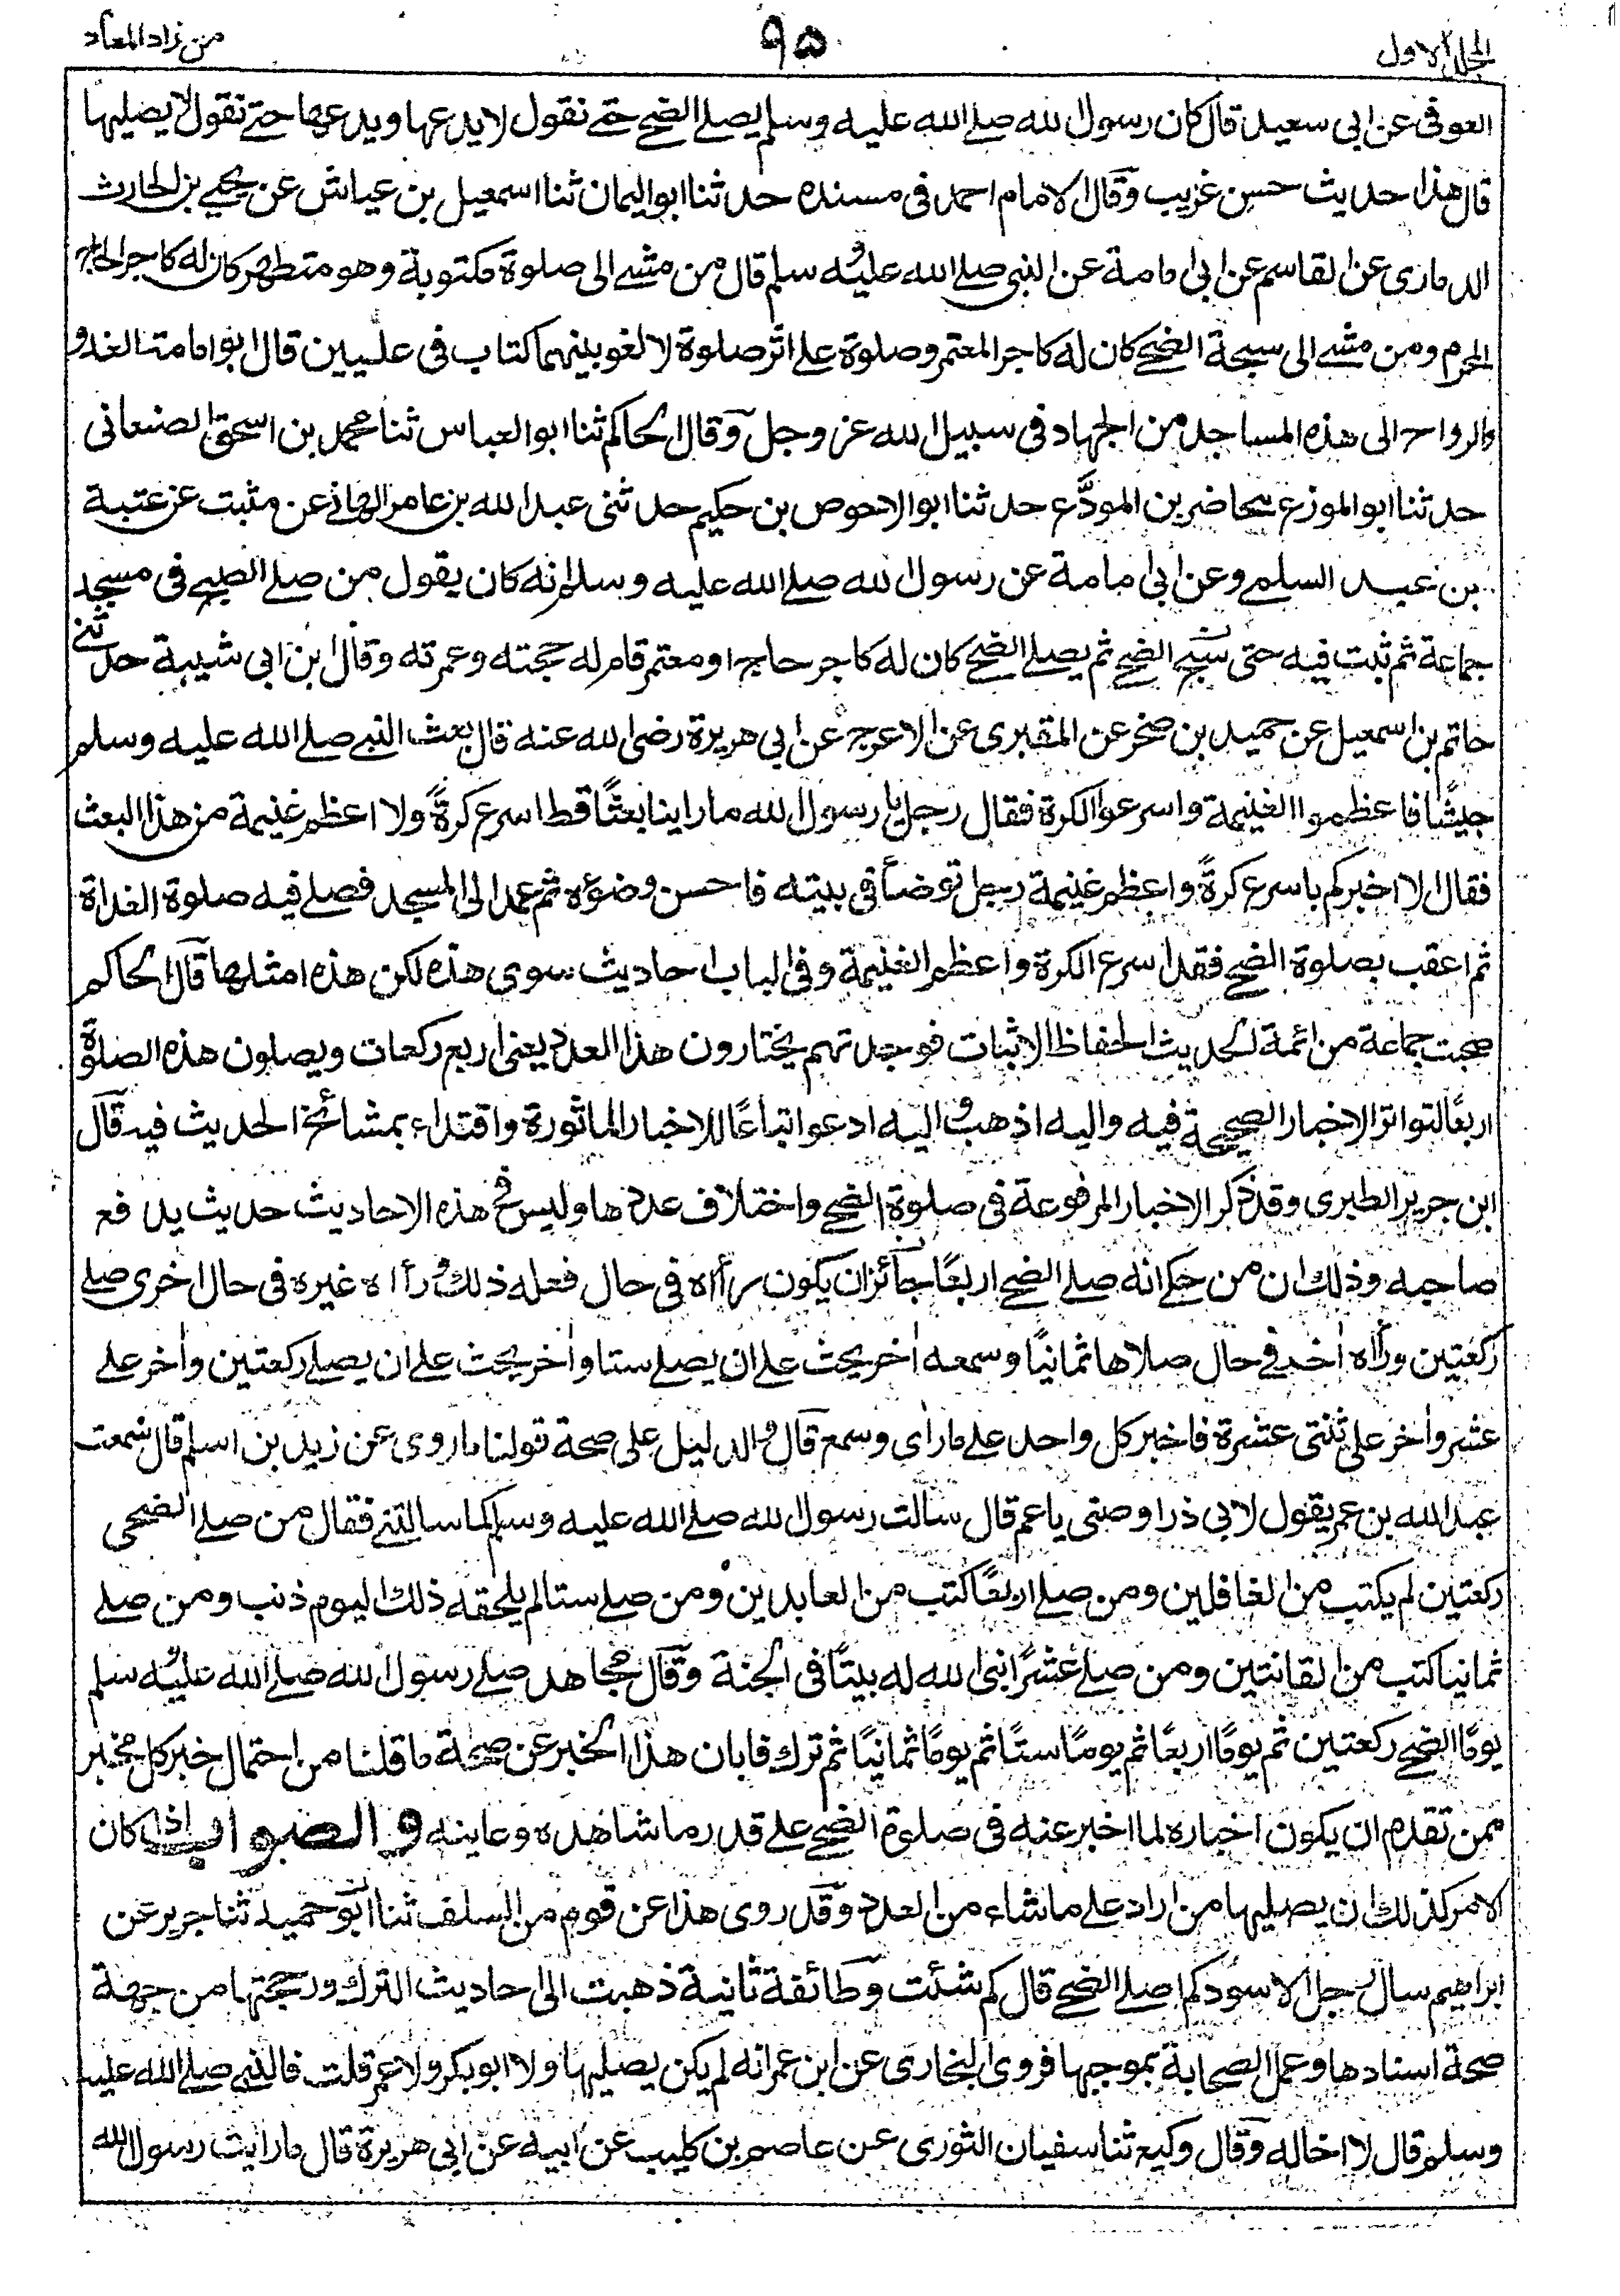 الجلد الاول
٩٥
من زاد المعاد
العوفى عن ابى سعيد قال كان رسول الله صلے الله عليه وسلم يصلے الضحے حتے نقول لا يدعها ويدعها حتے نقول لا يصليها
قال هذا حديث حسن غريب وقال الامام احمد فى مسنده حدثنا ابو اليمان ثنا اسمعيل بن عياش عن يحيے بن الحارث
الذمارى عن القاسم عن ابى امامة عن النبى صلے الله عليه وسلم قال من مشے الى صلوة مكتوبة وهو متطهر كان له كاجر الحاج
المحرم ومن مشے الى سبحة الضحے كان له كاجر المعتمر وصلوة علے اثر صلوة لا لغو بينهما كتاب فى عليين قال ابو امامة الغدو
والرواح الى هذه المساجد من الجهاد فى سبيل الله عز وجل وقال الحاكم ثنا ابو العباس ثنا محمد بن اسحق الصنعانى
حدثنا ابو الموزع محاضر بن المودَّع حدثنا ابو الاحوص بن حكيم حدثنى عبد الله بن عامر الهانے عن مثبت عن عتبة
بن عبد السلمے وعن ابى امامة عن رسول الله صلے الله عليه وسلم انه كان يقول من صلے الصبح فى مسجد
جماعة ثم ثبت فيه حتى يسبح الضحے ثم يصلے الضحے كان له كاجر حاج او معتمر تام له حجته وعمرته وقال ابن ابى شيبة حدثنے
حاتم بن اسمعيل عن حميد بن صخر عن المقبرى عن الاعرج عن ابى هريرة رضى الله عنه قال بعث النبے صلے الله عليه وسلم
جيشًا فاعظموا الغنيمة واسرعوا الكرة فقال رجل يا رسول الله ما راينا بعثًا قط اسرع كرةً ولا اعظم غنيمة من هذا البعث
فقال الا اخبركم باسرع كرةً واعظم غنيمة رجل توضأ فى بيته فاحسن وضوءه ثم عمد الى المسجد فصلے فيه صلوة الغداة
ثم اعقب بصلوة الضحے فقد اسرع الكرة واعظم الغنيمة وفى الباب احاديث سوى هذه لكن هذه امثلها قال الحاكم
صحبت جماعة من ائمة الحديث الحفاظ الاثبات فوجدتهم يختارون هذا العدد يعنى اربع ركعات ويصلون هذه الصلوة
اربعًا لتواتر الاخبار الصحيحة فيه واليه اذهب واليه ادعو اتباعًا للاخبار الماثورة واقتداء بمشائخ الحديث فيه قال
ابن جرير الطبرى وقد ذكر الاخبار المرفوعة فى صلوة الضحے واختلاف عددها وليس فے هذه الاحاديث حديث يدفع
صاحبه وذلك ان من حكے انه صلے الضحے اربعًا جائز ان يكون رأاه فى حال فعله ذلك ورأاه غيره فى حال اخرى صلے
ركعتين ورأاه اٰخر فے حال صلاها ثمانيًا وسمعه اٰخر يحث علے ان يصلے ستا واٰخر يحث علے ان يصلے ركعتين واٰخر علے
عشر واٰخر على ثنتى عشرة فاخبر كل واحد علے ما راٰى وسمع قال والدليل على صحة قولنا ما روى عن زيد بن اسلم قال سمعت
عبد الله بن عمر يقول لابى ذر اوصنى يا عم قال سالت رسول الله صلے الله عليه وسلم كما سالتنے فقال من صلے الضحى
ركعتين لم يكتب من الغافلين ومن صلے اربعًا كتب من العابدين ومن صلے ستا لم يلحقه ذلك اليوم ذنب ومن صلے
ثمانيا كتب من القانتين ومن صلے عشرًا بنى الله له بيتًا فى الجنة وقال مجاهد صلے رسول الله صلے الله عليه وسلم
يومًا الضحے ركعتين ثم يومًا اربعًا ثم يومًا ستًا ثم يومًا ثمانيًا ثم ترك فابان هذا الخبر عن صحة ما قلنا من احتمال خبر كل مخبر
ممن تقدم ان يكون اخباره لما اخبر عنه فى صلوة الضحے علے قدر ما شاهده وعاينه والصواب اذا كان
الامر كذلك ان يصليها من اراد علے ما شاء من العدد وقد روى هذا عن قوم من السلف ثنا ابن حميد ثنا جرير عن
ابراهيم سال رجل الاسود كم اصلے الضحے قال كم شئت وطائفة ثانية ذهبت الى احاديث الترك ورجحتها من جهة
صحة اسنادها وعمل الصحابة بموجبها فروى البخارى عن ابن عمر انه لم يكن يصليها ولا ابو بكر ولا عمر قلت فالنبے صلے الله عليه
وسلم قال لا اخاله وقال وكيع ثنا سفيان الثورى عن عاصم بن كليب عن ابيه عن ابى هريرة قال ما رايت رسول الله